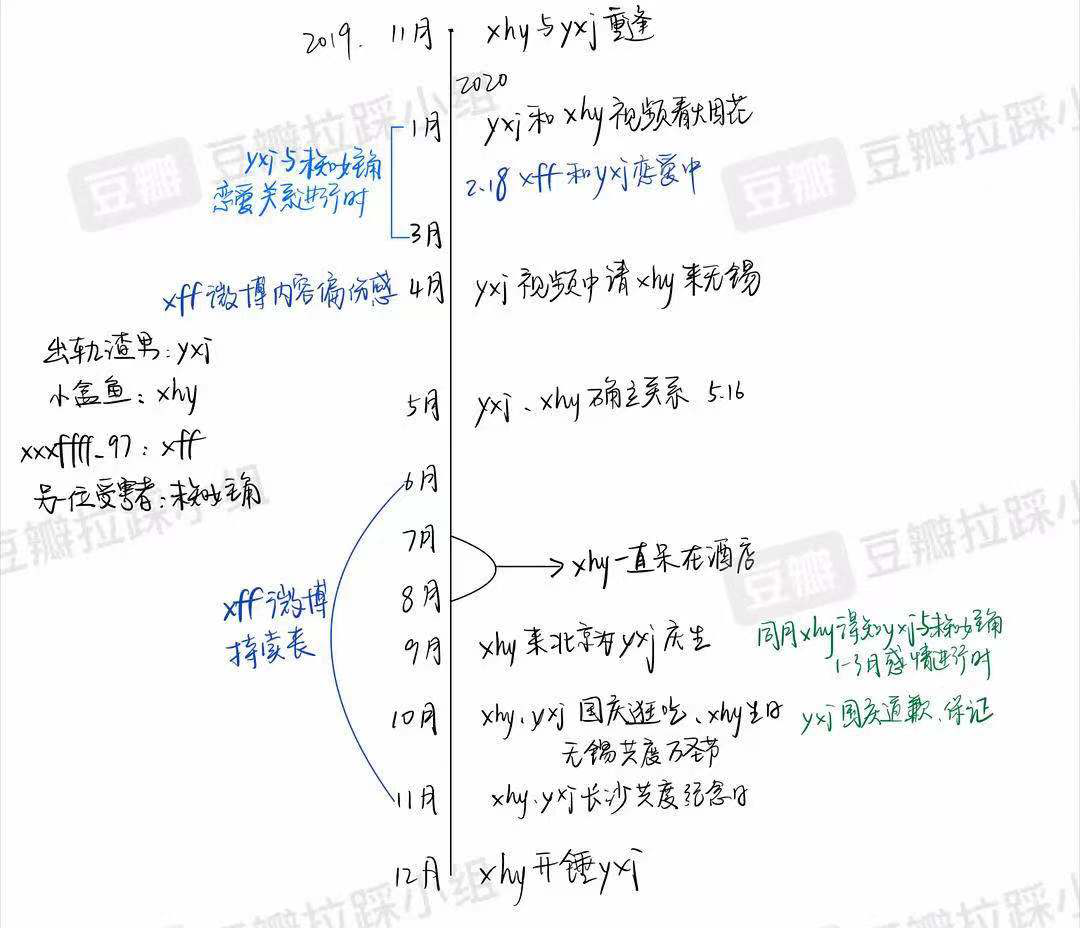 2019. 11月 xhy与yxj重逢
2020
1月 yxj和xhy视频看烟花
yxj与
恋爱关系进行时
2.18 xff和yxj恋爱中
3月
xff微博内容偏伤感 4月 yxj视频中请xhy来无锡
出轨渣男:yxj
小盒鱼:xhy
xxxffff_97:xff
另一位受害者:
5月 yxj、xhy确立关系 5.16
6月
7月
xhy一直呆在酒店
8月
xff微博
持续丧
9月 xhy来北京为yxj庆生
同月xhy得知yxj与
1-3月感情进行时
10月 xhy、yxj国庆逛吃、xhy生日
无锡共度万圣节
yxj国庆道歉、保证
11月 xhy、yxj长沙共度纪念日
12月 xhy开锤yxj
豆瓣 豆瓣拉踩小组
豆瓣 豆瓣拉踩小
豆瓣拉踩小组
豆瓣 豆瓣拉踩小
豆瓣拉踩小组
豆瓣拉踩小